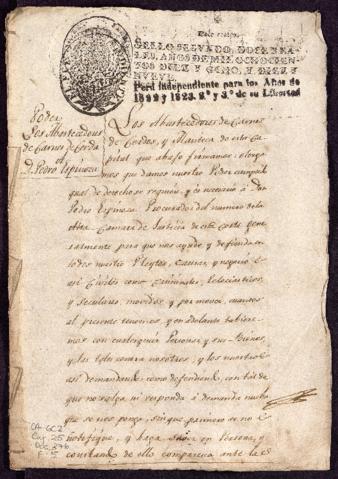 SELLO SEGUNDO, DOCE REA-
LES, AÑOS DE MIL OCHOCIEN-
TOS DIEZ Y OCHO, Y DIEZ Y
NUEVE.
Perú Independiente para los Años de
1822 y 1823. 2º y 3º de su Libertad
Poder
Los Abastecedores
de Carne de Cerda
a
D. Pedro Espinoza
Los Abastecedores de Carne
de Cerdos, y Manteca de esta Ca
pital que abajo firmamos: otorga
mos que damos nuestro Poder cumplido
qual de derecho se requiere, y es necesario a Don
Pedro Espinoza Procurador del numero de la
Camara de Justicia de esta Corte gene
ralmente para que nos ayude y defienda en
todos nuestros Pleytos, causas, y negocios
asi Civiles como criminales, Eclesiasticos,
y Seculares, movidos y por mover, cuantos
al presente tenemos, y en adelante tubiere
mos con cualesquier Personas, y sus Bienes,
y las tales contra nosotros, y los nuestros
asi demandando, como defendiendo, con tal de
que no salga ni responda a demanda nueba
que se nos ponga, sin que primero se nos
notifique, y haga saber en Persona, y
constando de ello comparesca ante la
CA-GC2
Caj. 25
Doc. 276
F. 5